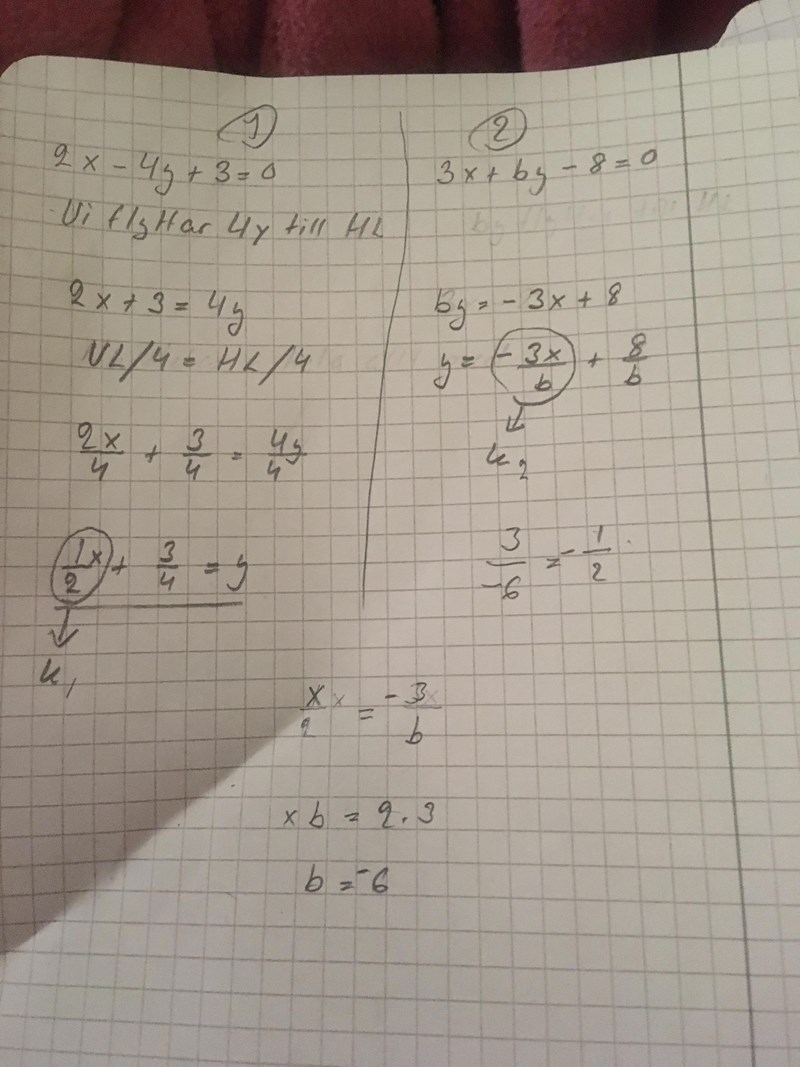 1
2x - 4y + 3 = 0
Vi flyttar 4y till HL
2x + 3 = 4y
VL/4 = HL/4
2x/4 + 3/4 = 4y/4
1x/2 + 3/4 = y
k₁
2
3x + by - 8 = 0
by = -3x + 8
y = -3x/b + 8/b
k₂
3/-6 = -1/2
x/2 = -3/b
xb = 2·3
b = -6